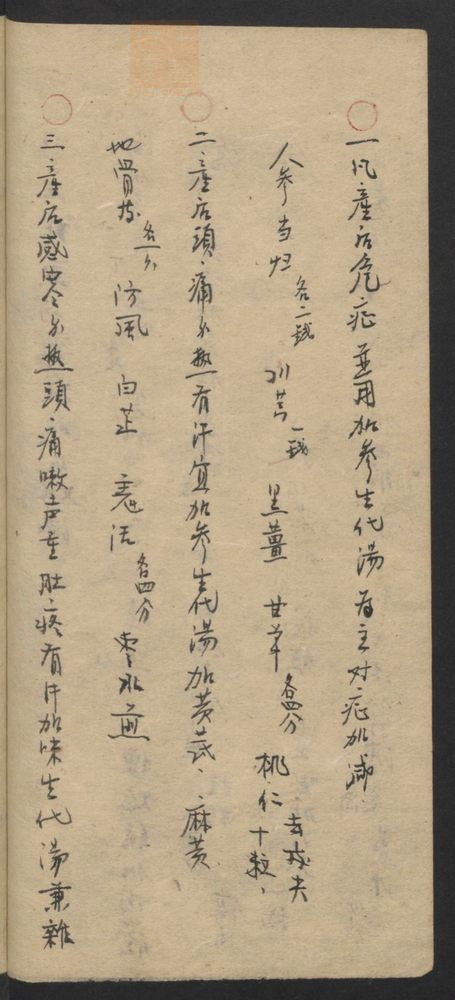 一凡產后危症並用加參生化湯為主対症加減
人参当归各二錢川芎一錢黑薑甘草各四分桃仁十粒去皮尖
二產后頭痛发热有汗宜加參生化湯加黄芪、麻黄、
地骨皮各一分防風白芷羌活各四分枣水煎
三產后感寒发热頭痛嗽声重肚疼有汗加味生化湯兼雜